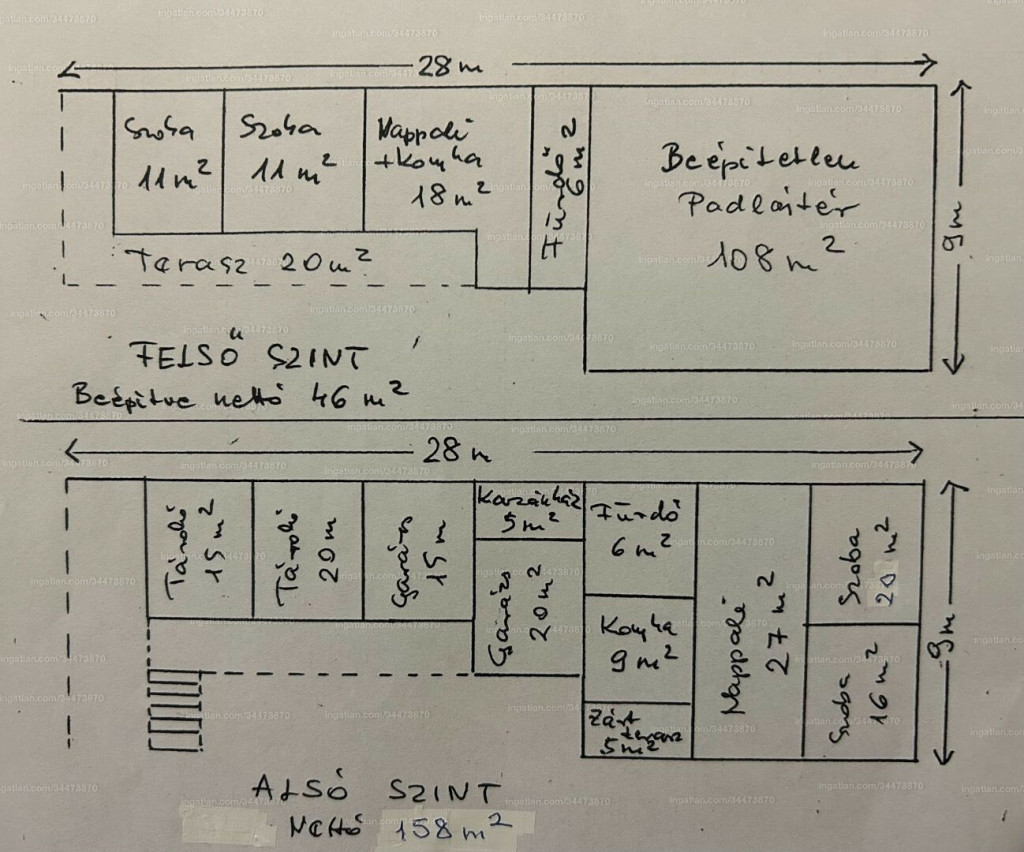 28 m
Szoba
11 m²
Szoba
11 m²
Nappali
+ Konyha
18 m²
Fürdő
6 m²
Beépítetlen
Padlástér
108 m²
9 m
Terasz 20 m²
FELSŐ SZINT
Beépítve nettó 46 m²
28 m
Tároló
15 m²
Tároló
20 m
Garázs
15 m
Kazánház
5 m²
Garázs
20 m²
Fürdő
6 m²
Konyha
9 m²
Zárt
terasz
5 m²
Nappali
27 m²
Szoba
20 m²
Szoba
16 m²
9 m
ALSÓ SZINT
Nettó 158 m²
ingatlan.com/34473870